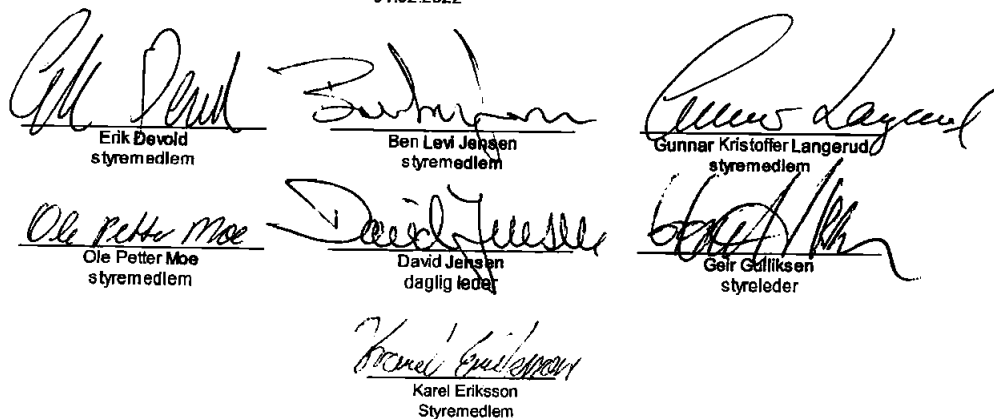 Erik Devold
styremedlem
Ben Levi Jensen
styremedlem
Gunnar Kristoffer Langerud
styremedlem
Ole Petter Moe
Ole Petter Moe
styremedlem
David Jensen
David Jensen
daglig leder
Geir Gulliksen
styreleder
Karel Eriksson
Karel Eriksson
Styremedlem